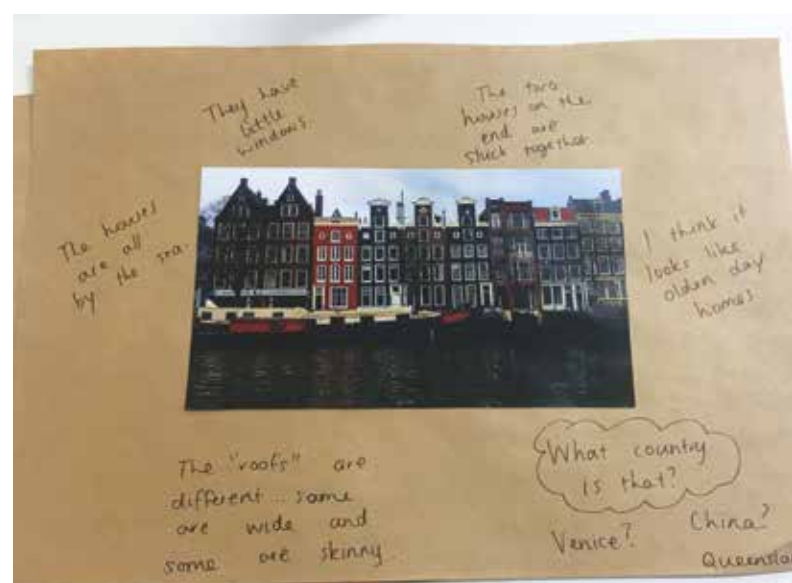 They have
little
windows.
The two
houses on the
end are
stuck together.
The houses
are all
by the sea.
I think it
looks like
olden day
homes
The "roofs" are
different... some
are wide and
some are skinny.
What country
is that?
Venice?
China?